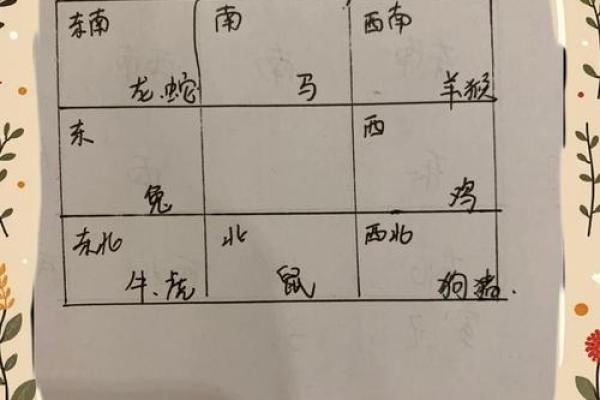 东南 南 西南
龙.蛇 马 羊猴
东 西
兔 鸡
东北 北 西北
牛、虎 鼠 狗猪.